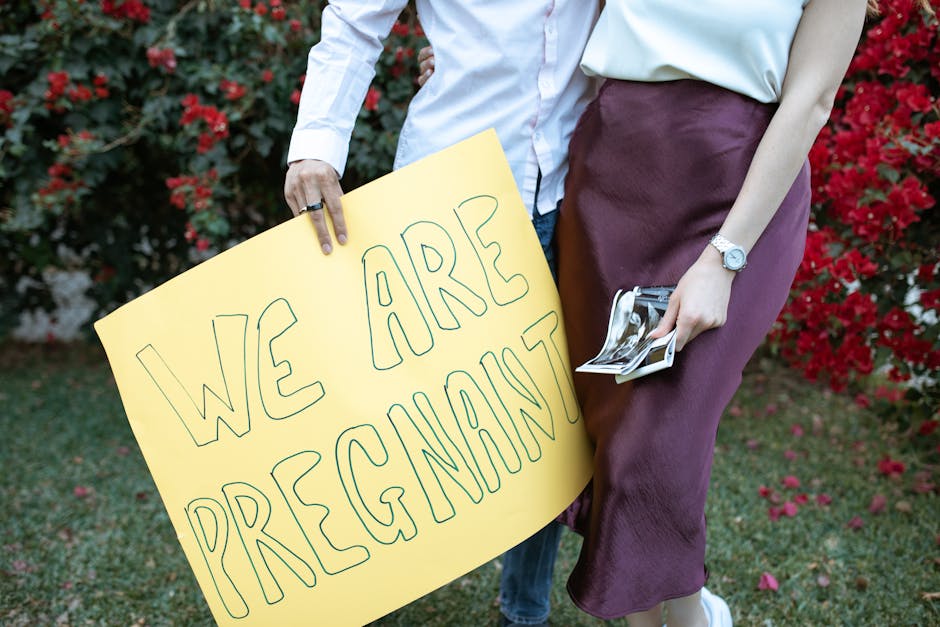 WE ARE
PREGNANT